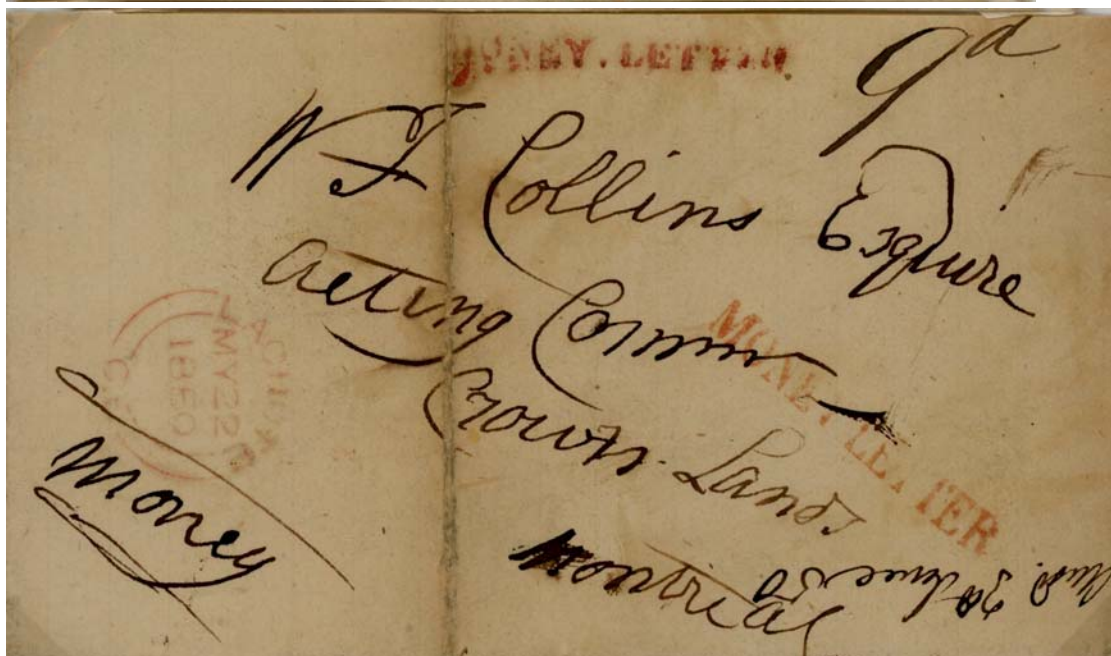 MONEY. LETTER.
9d
W F Collins Esquire
Acting Commr
Crown Lands
Montreal
MONEY. LETTER
Money
MY 22
1850
June 50